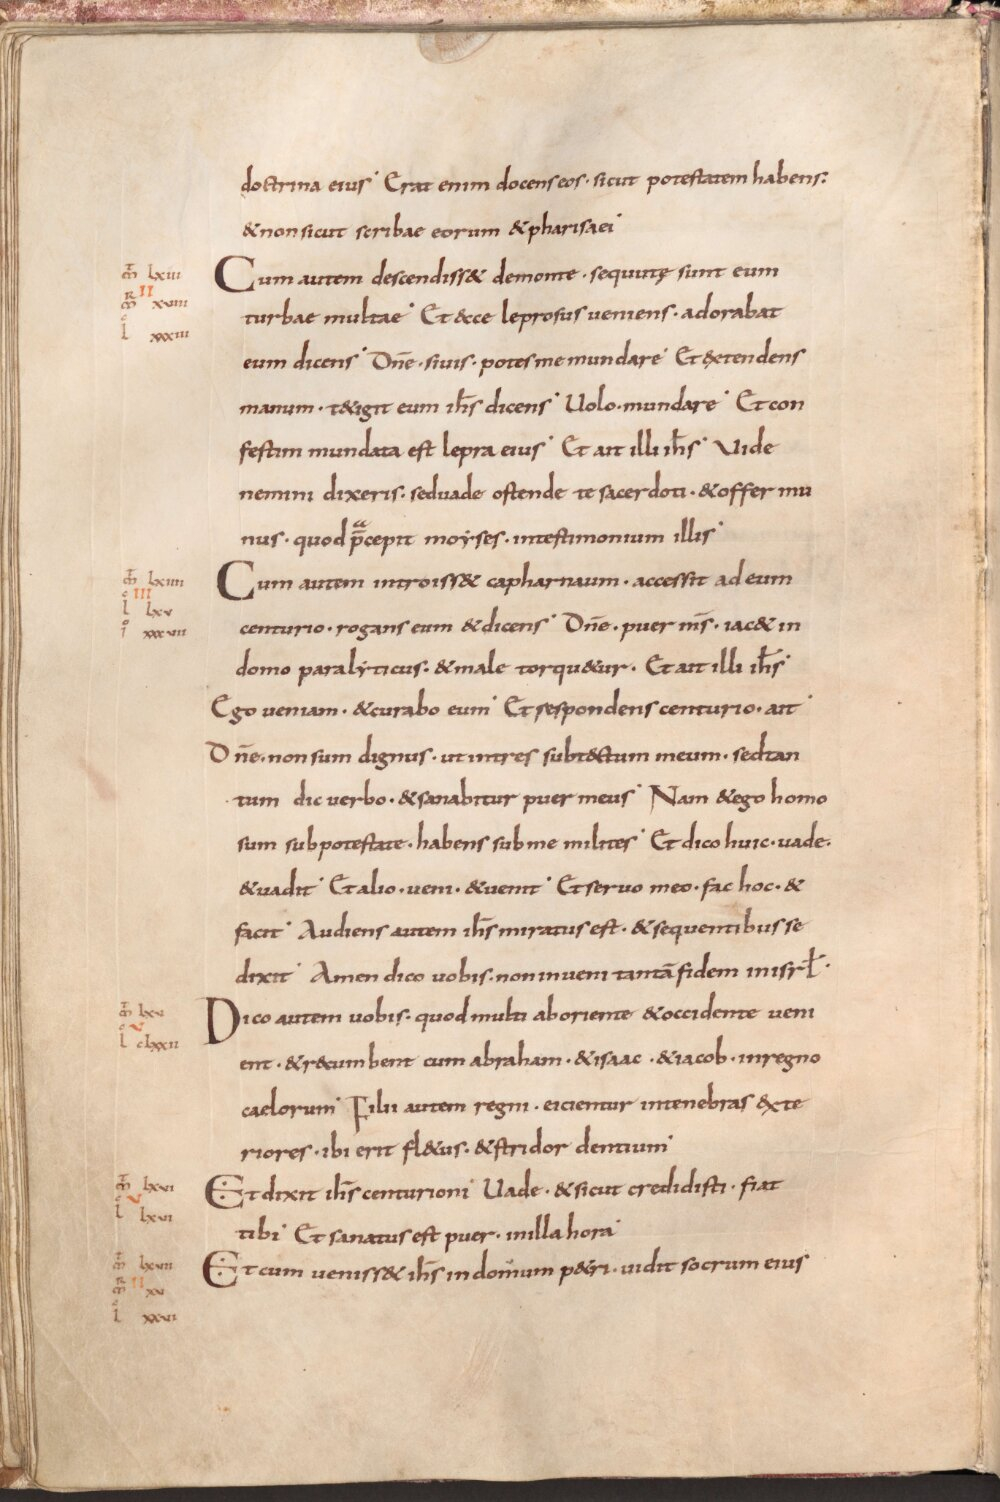 doctrina eius· Erat enim docens eos· sicut potestatem habens:
& non sicut scribae eorum & pharisaei·
m̄ lxiii
Cum autem descendiss& de monte· sequutę sunt eum
II
m̄ xviii
turbae multae· Et ecce leprosus ueniens· adorabat
l xxxiii
eum dicens· Dn̄e· si uis· potes me mundare· Et extendens
manum· t&igit eum ih̄s dicens· Uolo· mundare· Et con
festim mundata est lepra eius· Et ait illi ih̄s· Uide
nemini dixeris· sed uade ostende te sacerdoti· & offer mu
nus· quod p̄cepit moyses· in testimonium illis·
m̄ lxiiii
Cum autem introiss& capharnaum· accessit ad eum
III
l lxv
centurio· rogans eum & dicens· Dn̄e· puer m̄s· iac& in
i xxxvii
domo paralyticus· & male torqu&ur· Et ait illi ih̄s·
Ego ueniam· & curabo eum· Et respondens centurio· ait·
Dn̄e· non sum dignus· ut intres sub t&ctum meum· sed tan
tum dic uerbo· & sanabitur puer meus· Nam & ego homo
sum sub potestate· habens sub me milites· Et dico huic· uade·
& uadit· Et alio· ueni· & uenit· Et seruo meo· fac hoc· &
facit· Audiens autem ih̄s miratus est· & sequentibus se
dixit· Amen dico uobis· non inueni tantā fidem in isrł·
m̄ lxv
Dico autem uobis· quod multi ab oriente & occidente ueni
V
l clxxii
ent· & r&cumbent cum abraham· & isaac· & iacob· in regno
caelorum· Filii autem regni· eicientur in tenebras exte
riores· ibi erit fl&us· & stridor dentium·
m̄ lxvi
Et dixit ih̄s centurioni· Uade· & sicut credidisti· fiat
V
l lxvi
tibi· Et sanatus est puer· in illa hora·
m̄ lxvii
Et cum ueniss& ih̄s in domum p&ri· uidit socrum eius
II
m̄ xv
l xxvi